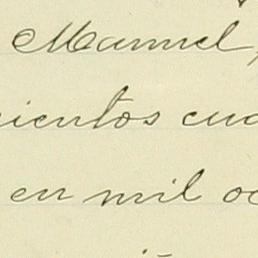 Manuel,
cientos cua
en mil oc